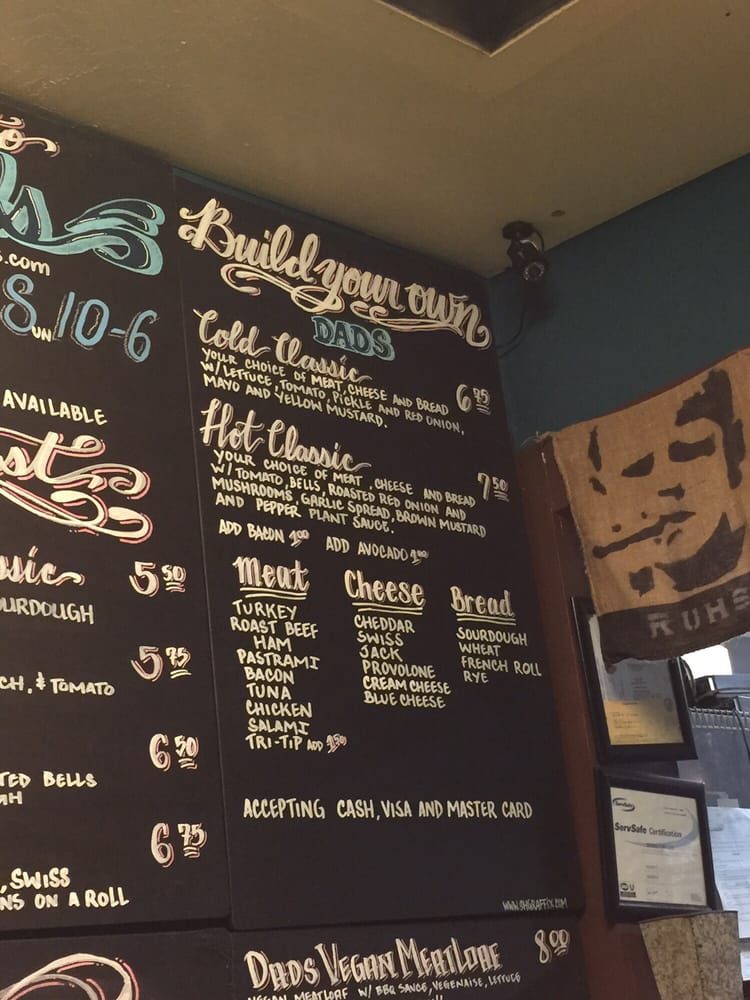 to
s.com
S UN 10-6
AVAILABLE
5 50
OURDOUGH
5 75
CH, & TOMATO
6 50
TED BELLS
GH
6 75
, SWISS
NS ON A ROLL
Build your own
DADS
Cold Classic
YOUR CHOICE OF MEAT, CHEESE AND BREAD
W/LETTUCE, TOMATO, PICKLE AND RED ONION,
MAYO AND YELLOW MUSTARD.
6 75
Hot Classic
YOUR CHOICE OF MEAT, CHEESE AND BREAD
W/TOMATO, BELLS, ROASTED RED ONION AND
MUSHROOMS, GARLIC SPREAD, BROWN MUSTARD
AND PEPPER PLANT SAUCE.
7 50
ADD BACON 1.00 ADD AVOCADO 1.00
Meat
TURKEY
ROAST BEEF
HAM
PASTRAMI
BACON
TUNA
CHICKEN
SALAMI
TRI-TIP ADD 1.50
Cheese
CHEDDAR
SWISS
JACK
PROVOLONE
CREAM CHEESE
BLUE CHEESE
Bread
SOURDOUGH
WHEAT
FRENCH ROLL
RYE
ACCEPTING CASH, VISA AND MASTER CARD
DADS VEGAN MEATLOAF 8 00
VEGAN MEATLOAF W/ BBQ SAUCE, VEGENAISE, LETTUCE
RUHS
ServSafe
ServSafe Certification